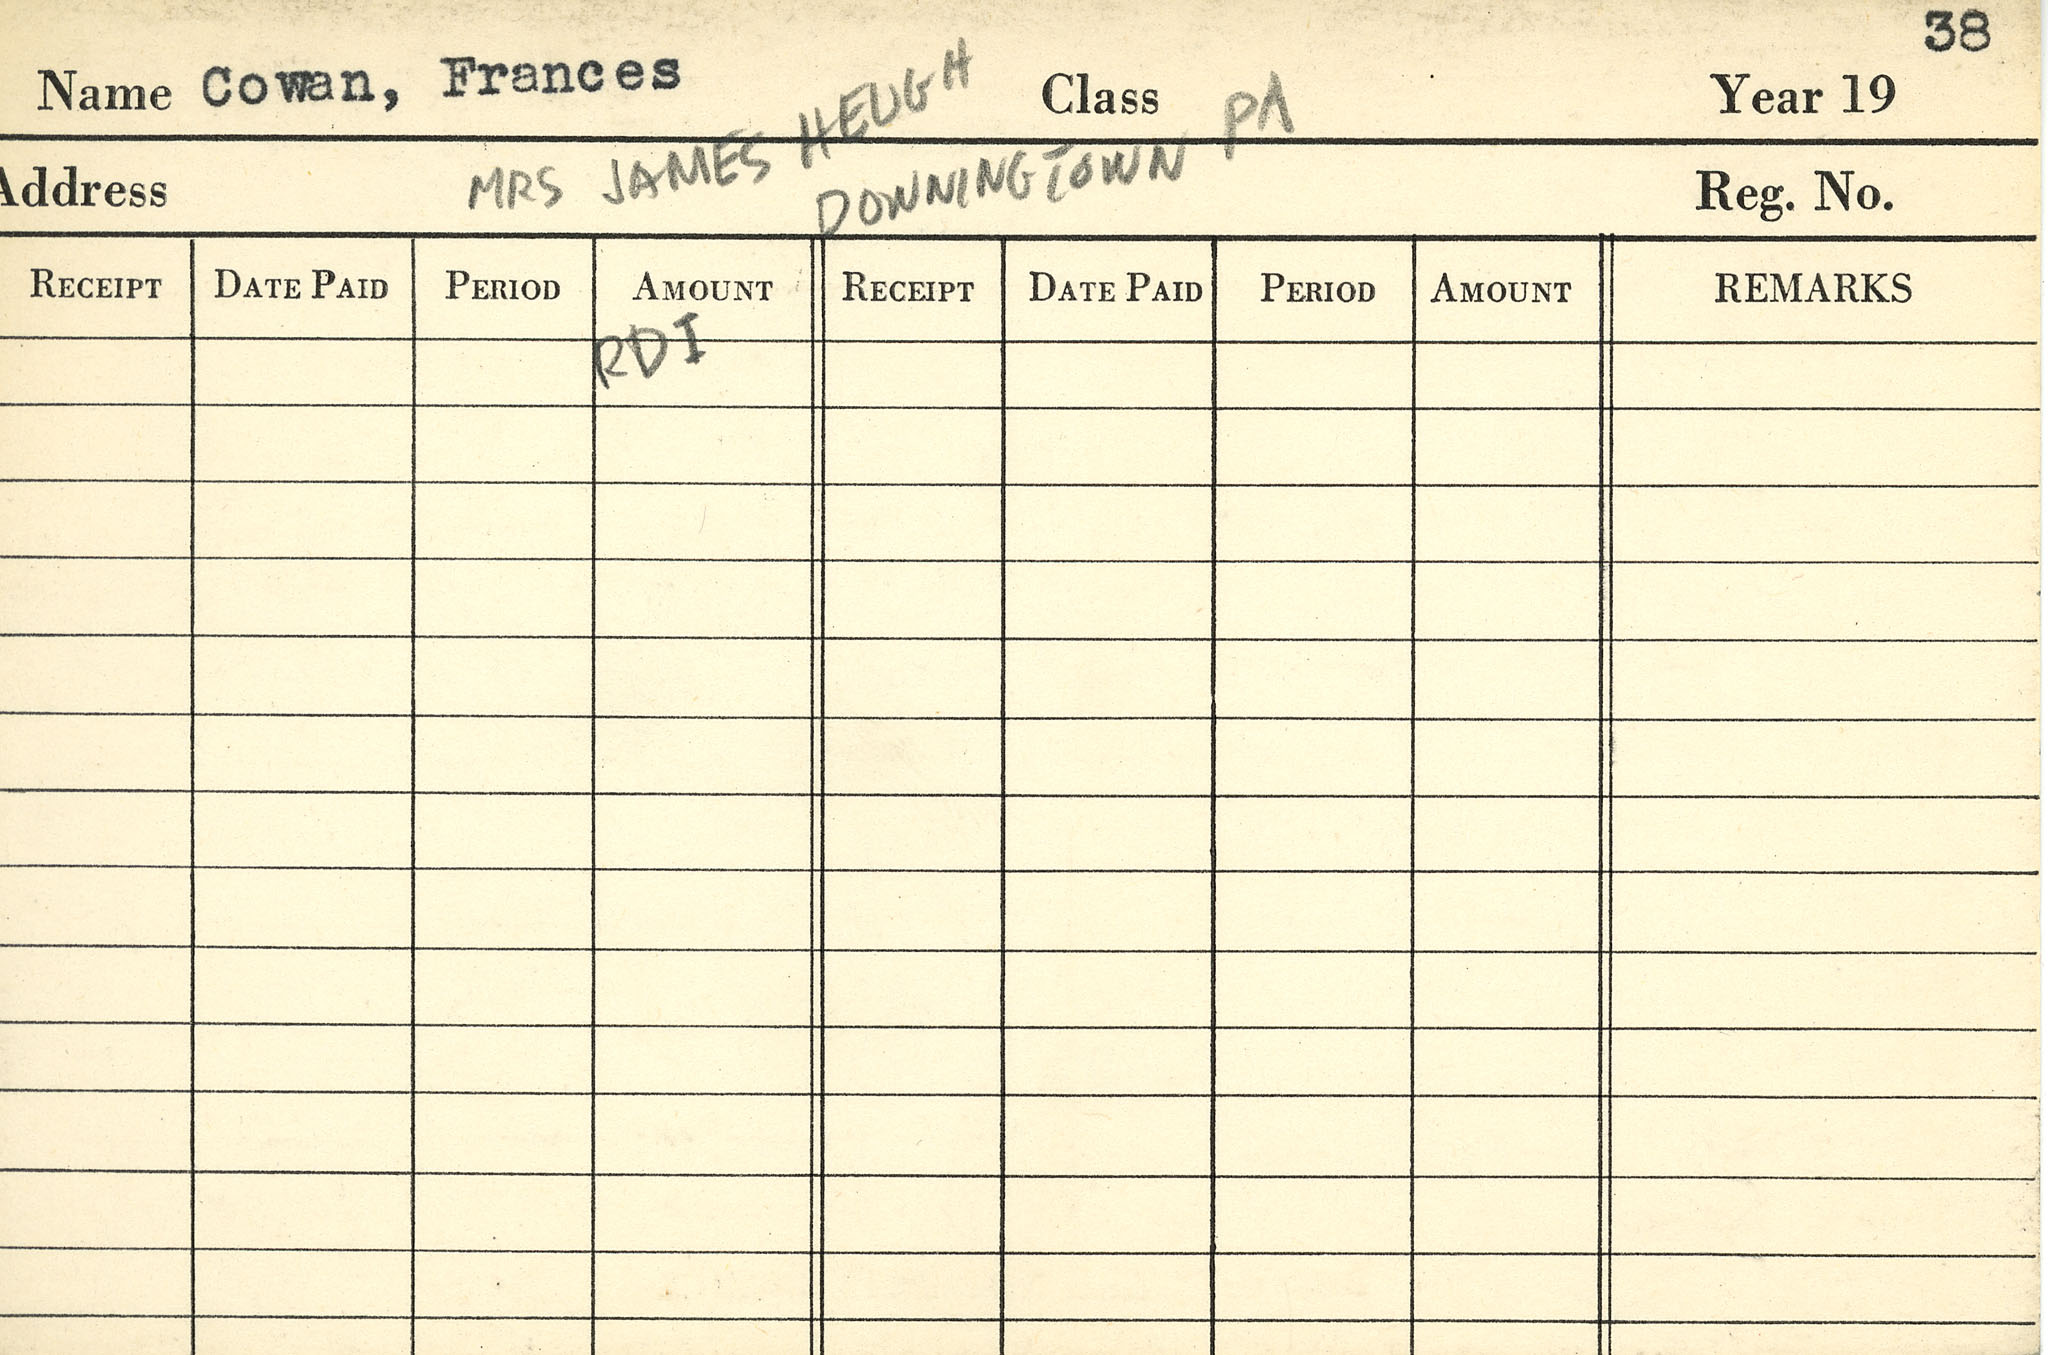 38
Name Cowan, Frances Class Year 19
MRS JAMES HEUGH
Address Reg. No.
DOWNINGTOWN PA
RECEIPT DATE PAID PERIOD AMOUNT RECEIPT DATE PAID PERIOD AMOUNT REMARKS
RDI